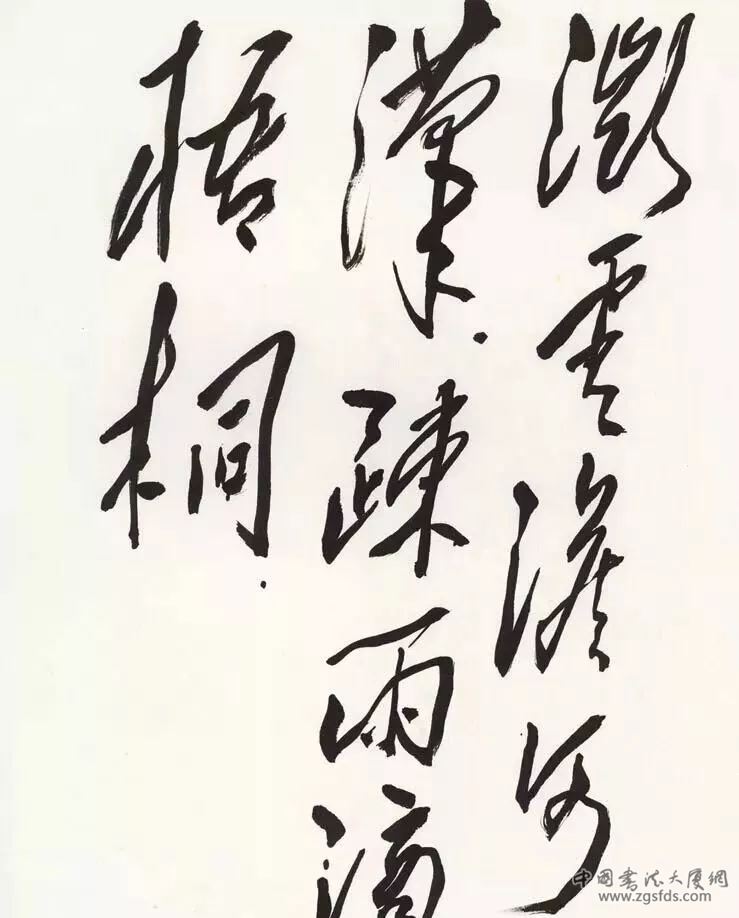 微雲澹河
漢.疎雨滴
梧桐.
中国书法大厦網
www.zgsfds.com